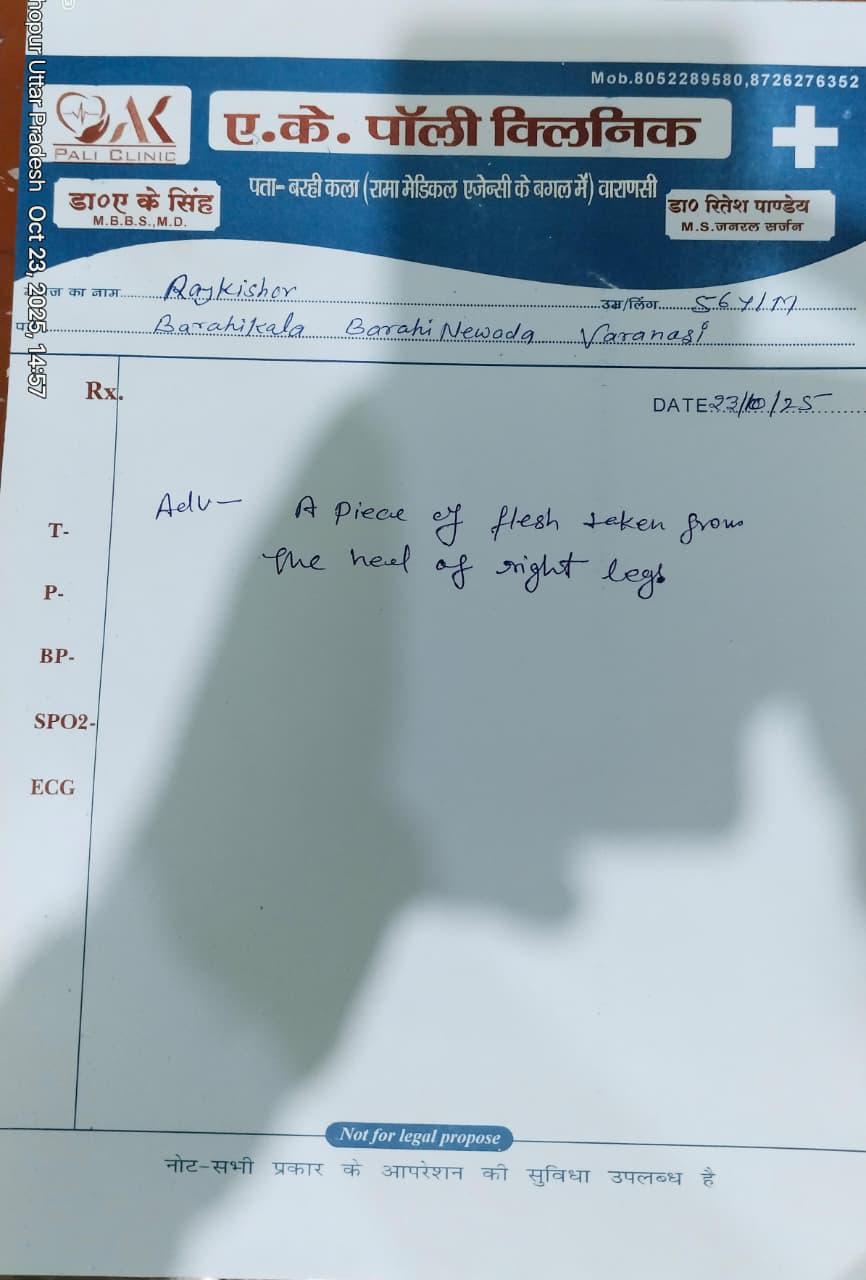 hopur Uttar Pradesh Oct 23, 2025, 14:57
Mob.8052289580,8726276352
AK
PALI CLINIC
ए.के. पॉली क्लिनिक
पता- बरही कला (रामा मेडिकल एजेन्सी के बगल में) वाराणसी
डा०ए के सिंह
M.B.B.S.,M.D.
डा० रितेश पाण्डेय
M.S.जनरल सर्जन
ज का नाम Rajkishor उम्र/लिंग 56Y/M
Barahikala Barahi Newada Varanasi
Rx.
DATE 23/10/25
Adv- A piece of flesh taken from
the heel of right legs
T-
P-
BP-
SPO2-
ECG
Not for legal propose
नोट-सभी प्रकार के आपरेशन की सुविधा उपलब्ध है